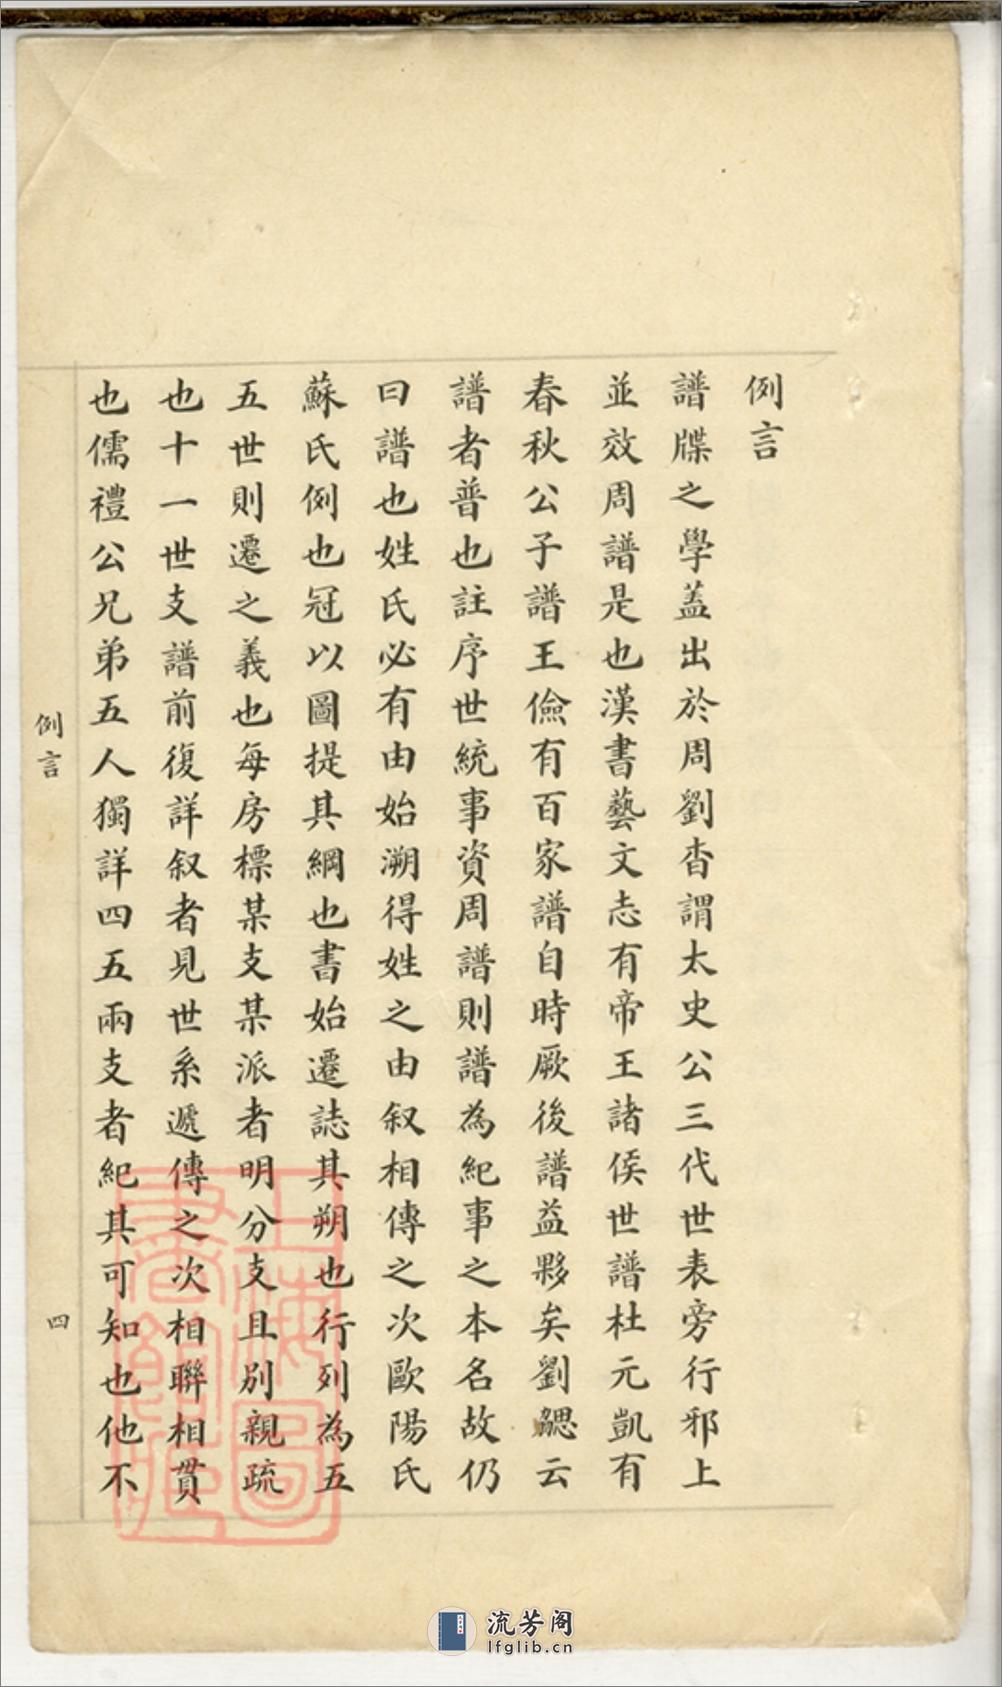 例言
譜牒之學蓋出於周劉杳謂太史公三代世表旁行邪上
並效周譜是也漢書藝文志有帝王諸侯世譜杜元凱有
春秋公子譜王儉有百家譜自時厥後譜益夥矣劉勰云
譜者普也註序世統事資周譜則譜為紀事之本名故仍
曰譜也姓氏必有由始溯得姓之由叙相傳之次歐陽氏
蘇氏例也冠以圖提其綱也書始遷誌其朔也行列為五
五世則遷之義也每房標某支某派者明分支且別親疏
也十一世支譜前復詳叙者見世系遞傳之次相聯相貫
也儒禮公兄弟五人獨詳四五兩支者紀其可知也他不
例言
四
上海圖書館藏
流芳阁
lfglib.cn